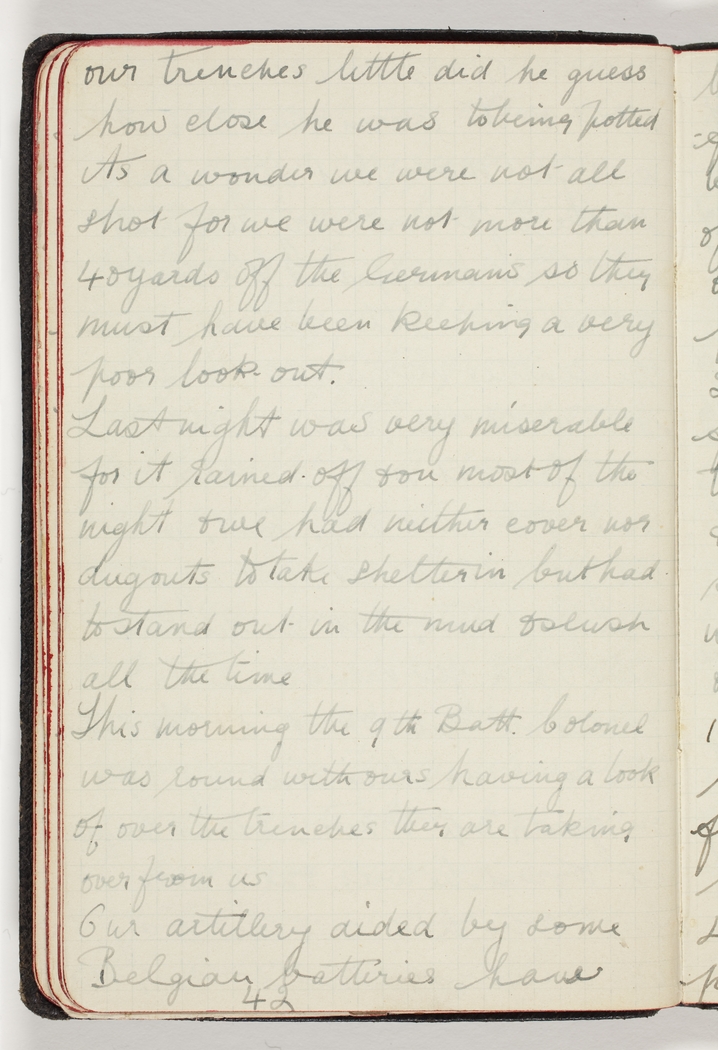 our trenches little did he guess
how close he was to being potted
Its a wonder we were not all
shot for we were not more than
40 yards off the Germans so they
must have been keeping a very
poor look-out.
Last night was very miserable
for it rained off & on most of the
night & we had neither cover nor
dugouts to take shelter in but had
to stand out in the mud & slush
all the time
This morning the 9th Batt. Colonel
was round with ours having a look
of over the trenches they are taking
over from us
Our artillery aided by some
Belgian batteries have
42